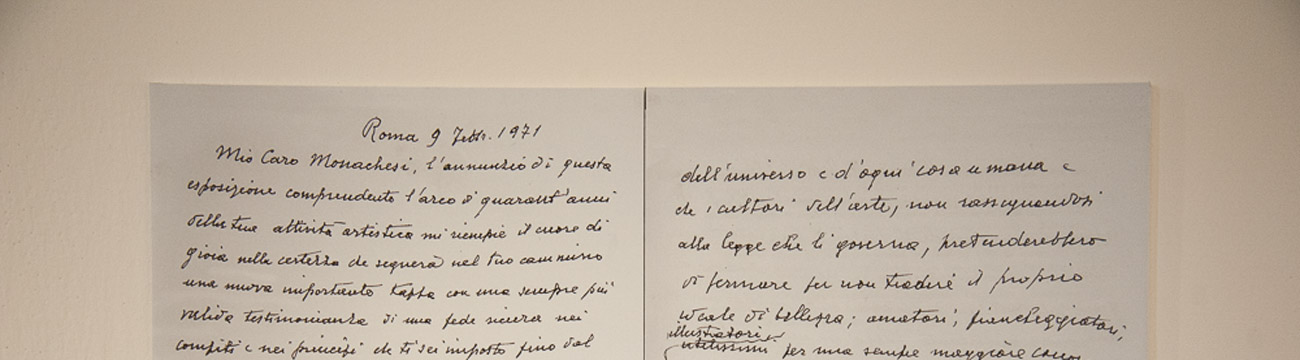 Roma 9 Febbr. 1971
Mio Caro Monachesi, l'annunzio di questa
esposizione comprendente l'arco di quarant'anni
della tua attività artistica mi riempie il cuore di
gioia nella certezza che segnerà nel tuo cammino
una nuova importante tappa con una sempre più
valida testimonianza di una fede sicura nei
compiti e nei principi che ti sei imposto fino dal
dell'universo e d'ogni cosa umana e
che i cultori dell'arte, non rassegnandosi
alla legge che li governa, pretenderebbero
di fermare per non tradire il proprio
ideale di bellezza; amatori, fiancheggiatori,
illustratori
utilissimi per una sempre maggiore